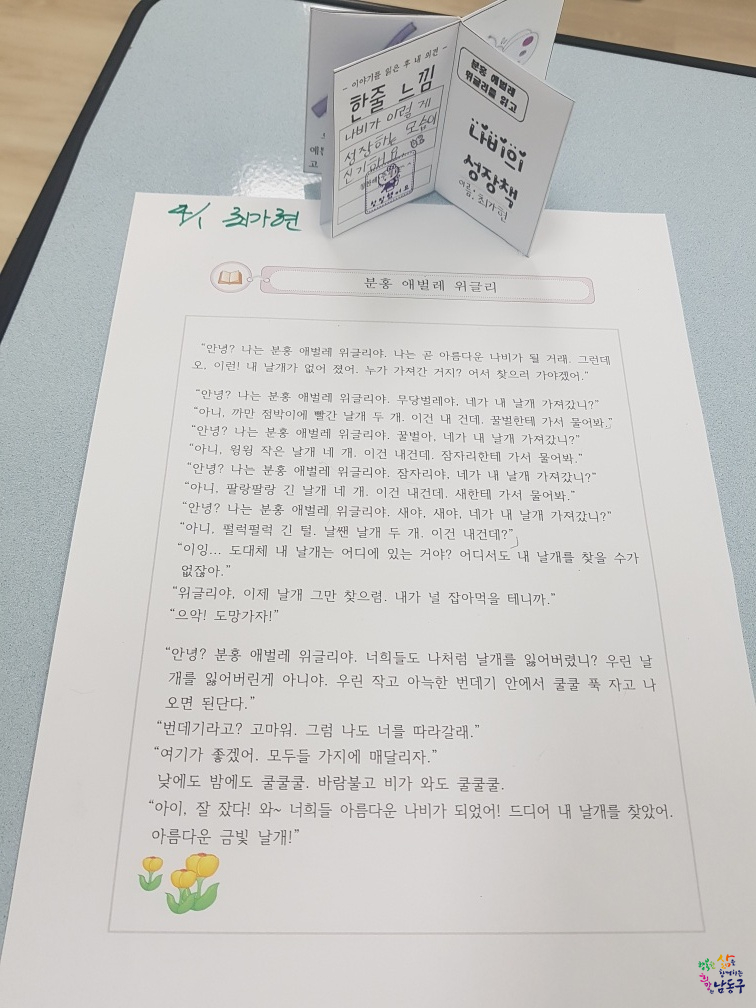 - 이야기를 읽은 후 내 의견 -
한줄 느낌
나비가 이렇게
성장하는 모습이
신기하다
분홍 애벌레
위글리를 읽고
나비의
성장책
이름: 최가현
4/1 최가현
분홍 애벌레 위글리
“안녕? 나는 분홍 애벌레 위글리야. 나는 곧 아름다운 나비가 될 거래. 그런데
오, 이런! 내 날개가 없어 졌어. 누가 가져간 거지? 어서 찾으러 가야겠어.”
“안녕? 나는 분홍 애벌레 위글리야. 무당벌레야, 네가 내 날개 가져갔니?”
“아니, 까만 점박이에 빨간 날개 두 개. 이건 내 건데. 꿀벌한테 가서 물어봐.”
“안녕? 나는 분홍 애벌레 위글리야. 꿀벌아, 네가 내 날개 가져갔니?”
“아니, 윙윙 작은 날개 네 개. 이건 내건데. 잠자리한테 가서 물어봐.”
“안녕? 나는 분홍 애벌레 위글리야. 잠자리야, 네가 내 날개 가져갔니?”
“아니, 팔랑팔랑 긴 날개 네 개. 이건 내건데. 새한테 가서 물어봐.”
“안녕? 나는 분홍 애벌레 위글리야. 새야, 새야, 네가 내 날개 가져갔니?”
“아니, 펄럭펄럭 긴 털. 날쌘 날개 두 개. 이건 내건데?”
“이잉... 도대체 내 날개는 어디에 있는 거야? 어디서도 내 날개를 찾을 수가
없잖아.”
“위글리야, 이제 날개 그만 찾으렴. 내가 널 잡아먹을 테니까.”
“으악! 도망가자!”
“안녕? 분홍 애벌레 위글리야. 너희들도 나처럼 날개를 잃어버렸니? 우린 날
개를 잃어버린게 아니야. 우린 작고 아늑한 번데기 안에서 쿨쿨 푹 자고 나
오면 된단다.”
“번데기라고? 고마워. 그럼 나도 너를 따라갈래.”
“여기가 좋겠어. 모두들 가지에 매달리자.”
낮에도 밤에도 쿨쿨쿨. 바람불고 비가 와도 쿨쿨쿨.
“아이, 잘 잤다! 와~ 너희들 아름다운 나비가 되었어! 드디어 내 날개를 찾았어.
아름다운 금빛 날개!”
행복한 삶을
창여하는
남동구